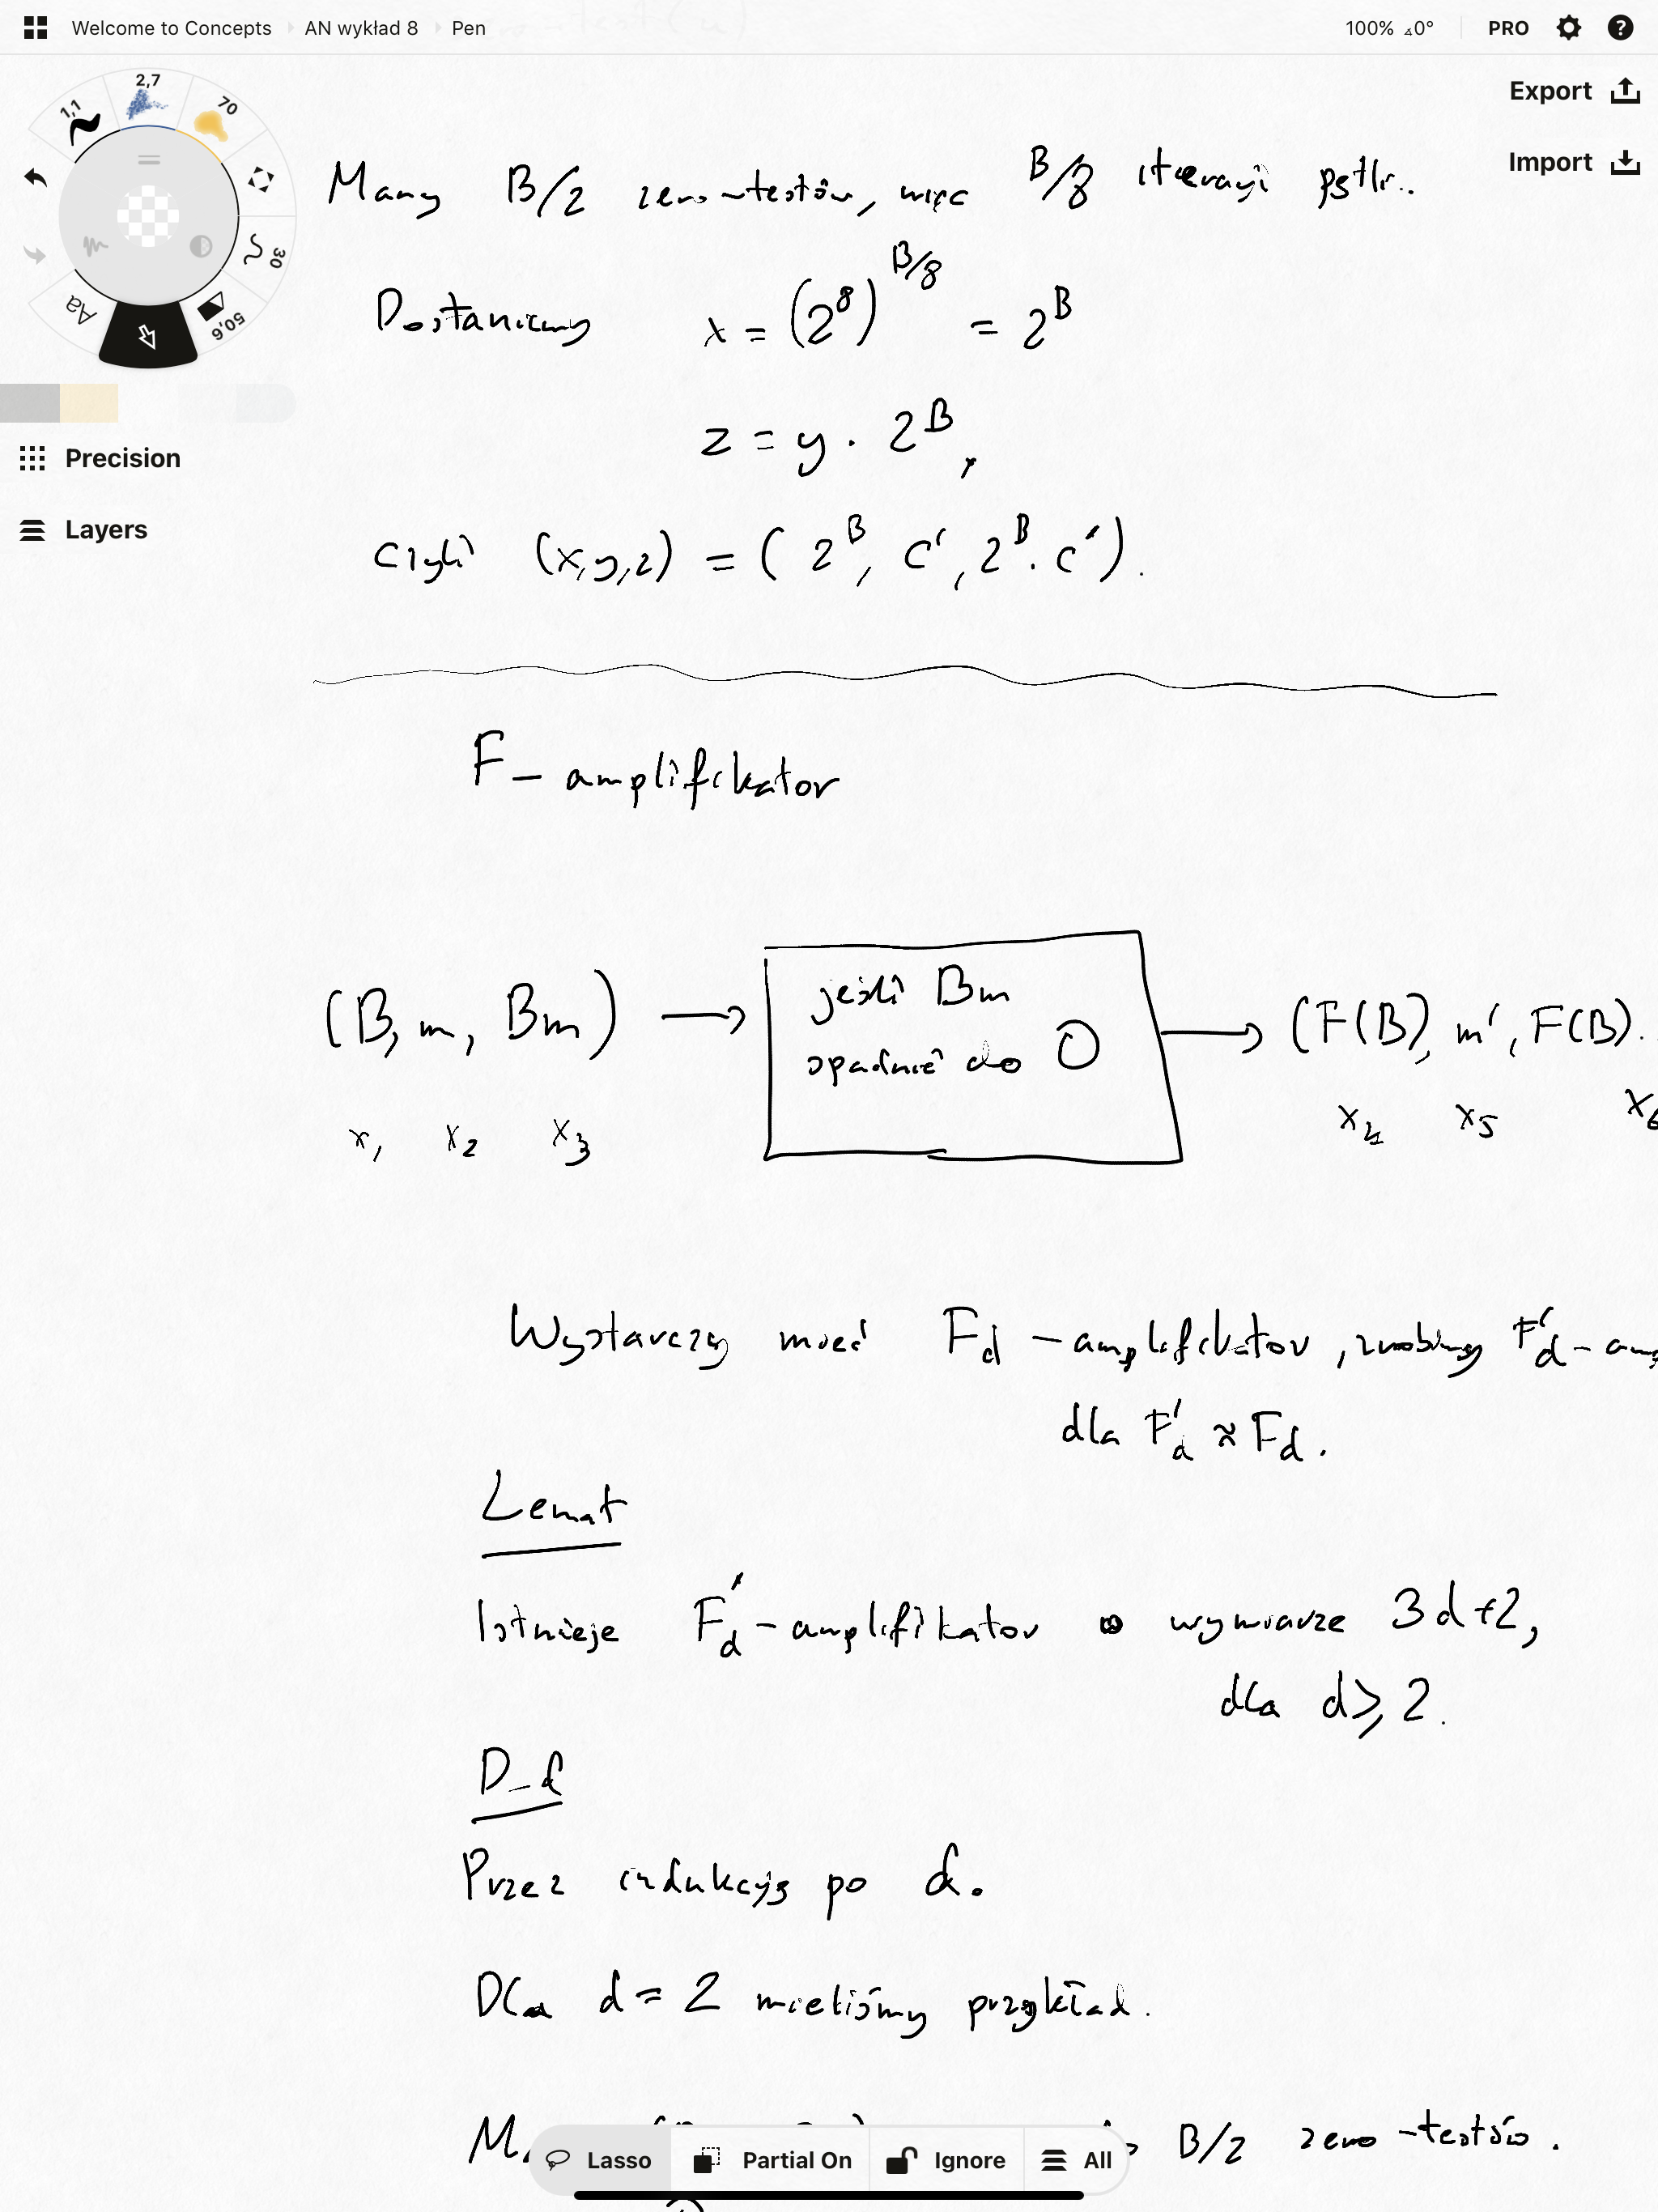 Welcome to Concepts AN wykład 8 Pen 100% ⊿0° PRO
Export
Import
2,7
1,1
70
30
50,6
Aa
Precision
Layers
Mamy B/2 zero-testów, więc B/8 iteracji pętli.
Dostaniemy x = (2⁸)^(B/8) = 2^B
z = y · 2^B,
czyli (x,y,z) = (2^B, c', 2^B · c').
F – amplifikator
(B, m, Bm) → jeśli Bm spadnie do 0 → (F(B), m', F(B)·
x₁ x₂ x₃ x₄ x₅ x₆
Wystarczy mieć F_d – amplifikator, zrobimy F'_d –
dla F'_d ≈ F_d.
Lemat
Istnieje F'_d – amplifikator o wymiarze 3d+2,
dla d ≥ 2.
D-d
Przez indukcję po d.
Dla d = 2 mieliśmy przykład.
B/2 zero-testów.
Lasso Partial On Ignore All